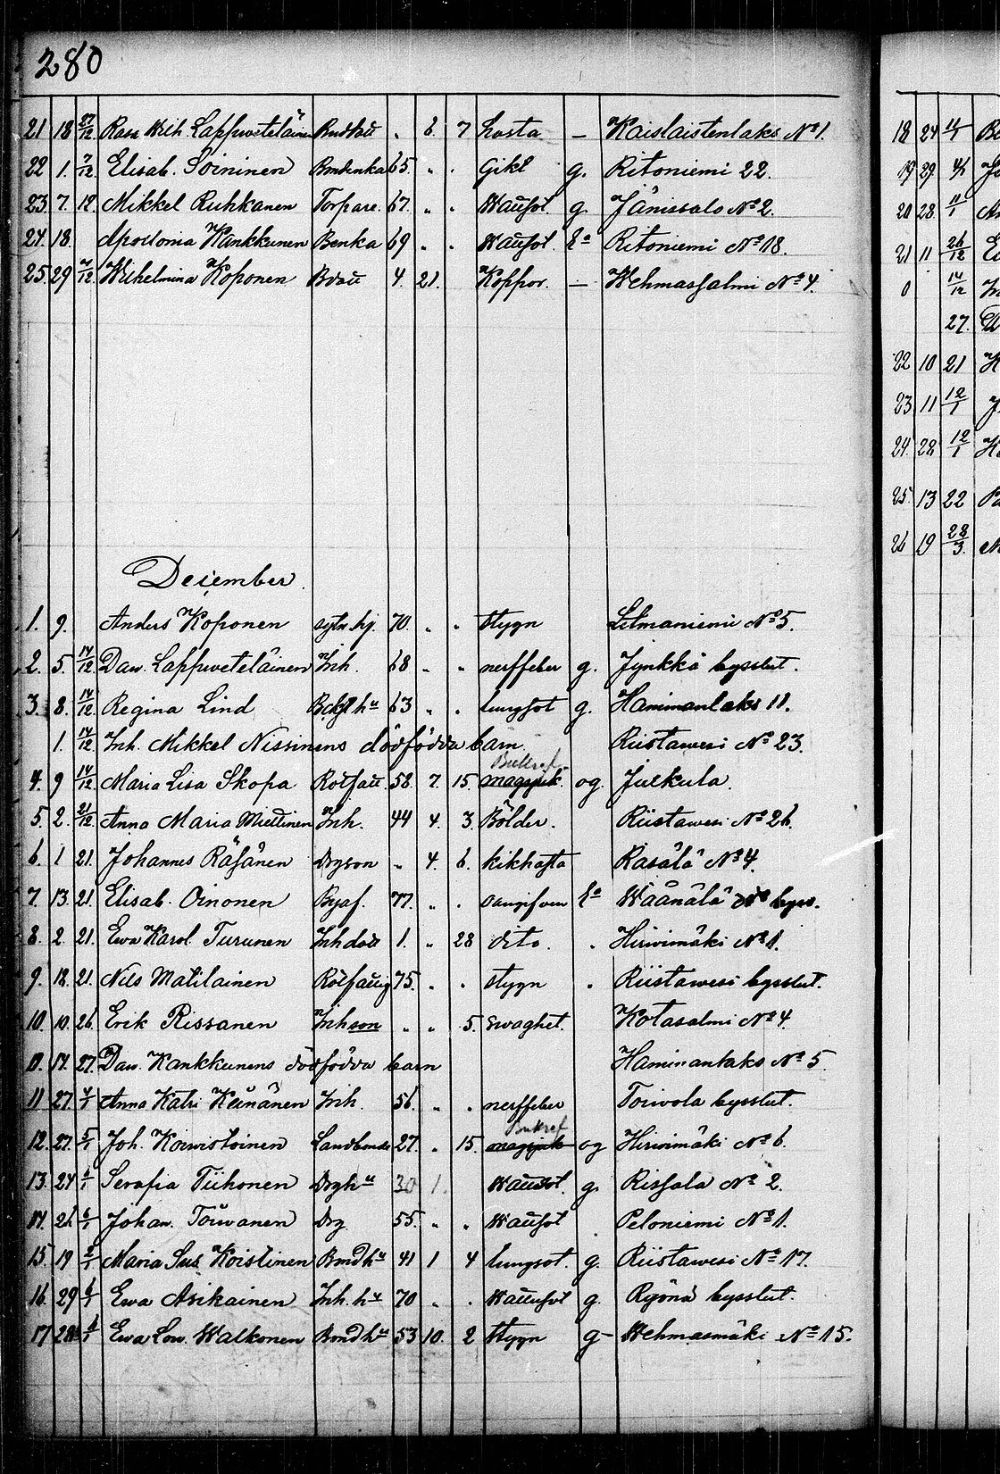 280
21 18 27/12 Rasa Krih. Lappweteläinen Bndtåu " 6 7 hosta — Kaislaistenlaks No 1.
22 1. 7/12 Elisab. Soininen Bndenka 65. " " Gikt g. Ritoniemi 22.
23 7. 12 Mikkel Ruhkanen Torpare. 67. " " Wattusot. g. Jänissalo No 2.
24. 18. Apollonia Kankkunen Benka 69 " " Wattusot. Ritoniemi No 18.
25. 29 7/12 Wilhelmina Koponen Bdått 4. 21. Koppor. — Wehmassalmi No 4.
December
1. 9. Anders Koponen sytn.hj. 70. " " Stygn Litmaniemi No 5.
2. 5. 14/12 Dav. Lappweteläinen Inh. 68 " " nerffeber g. Jynkkä bysslut.
3. 8. 14/12 Regina Lind hu 63 " . lungsot g. Haminanlaks 11.
1. 14/12 Inh. Mikkel Nissinens dödfödda barn. Riistawesi No 23.
4. 9 14/12 Maria Lisa Skopa Rotfatt. 58 7 15. Bukref magsjuk og Julkula.
5. 2. 21/12 Anna Maria Miettinen Inh. 44 4. 3. Bölder. Riistawesi No 26.
6. 1 21. Johannes Räsänen Drgson " 4. 6. kikhosta Rasälä No 4.
7. 13. 21. Elisab. Oinonen Byaf. 77. " . oangifven Wäänälä bys.
8. 2. 21. Ewa Karol. Turunen Inhdott 1. " 28 dito. " Hirwimäki No 1.
9. 18. 21. Nils Matilainen Rotfattig 75. . . Stygn " Riistawesi bysslut.
10. 10. 26. Erik Rissanen Inhson " " 5. Swaghet. Kotasalmi No 4.
0. 14. 27. Dav. Kankkunens dödfödda barn Haminanlaks No 5
11 27. 4/1 Anna Katri Keinänen Inh. 56. " . nerffeber Toivola bysslut.
12. 27. 5/1 Joh. Koiwistoinen Landbonde 27. " 15. Bukref magsjuk og Hirwimäki No 6.
13. 24 Serafia Tiihonen Drghu 30 1. Wattusot. g. Rissala No 2.
14. 26 Johan. Toiwanen Drg 55. " . Wattusot Peloniemi No 1.
15. 19 Maria Sus. Koistinen Bondhu 41 1 4 lungsot. g. Riistawesi No 17.
16. 29 Ewa Asikainen Inh. hu 70 " . Wattusot g. Ryönä bysslut.
17 28 Ewa Lov. Walkonen Bondhu 53 10. 2 Stygn g- Wehmasmäki No 15.
18 24
19 29.
20 28.
21 11 26/12
0 14/12
27.
22 10 21
23 11 12/1
24. 28 12/1
25. 13 22
26 19 28/3